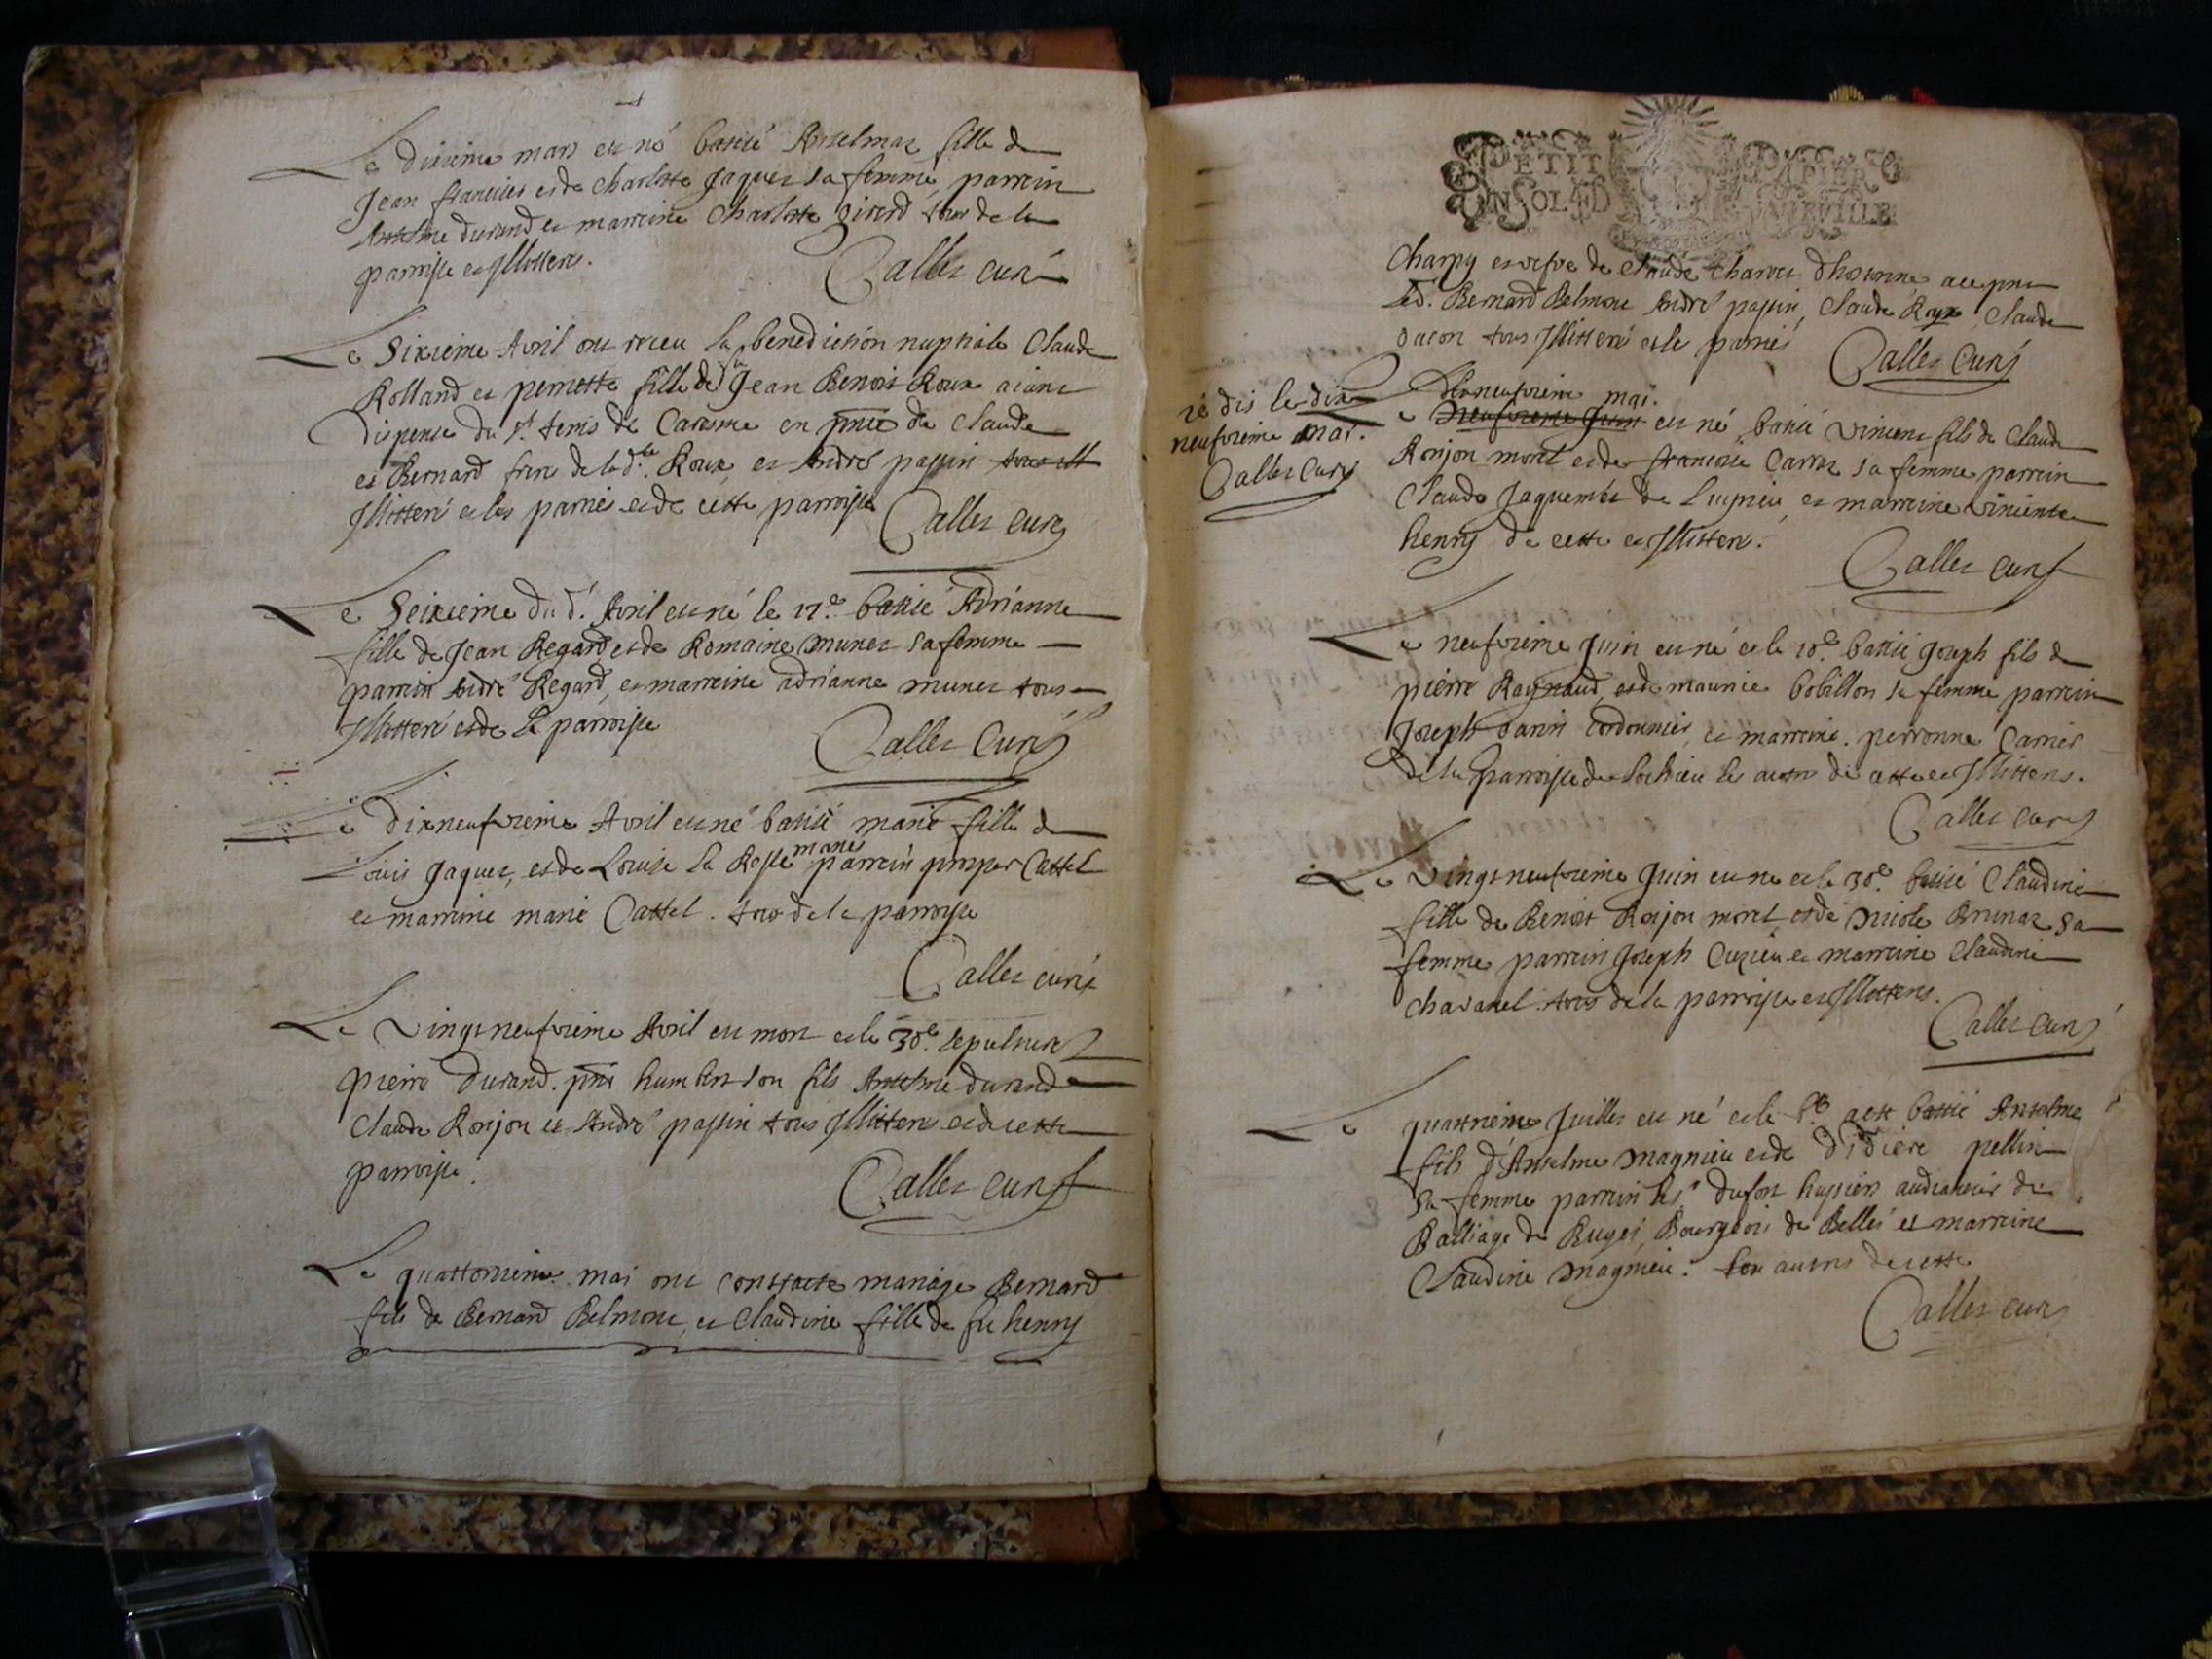 Le dixieme mars est né batisé Anselmaz fille de
Jean francier et de Charlotte Jaquet sa femme, parrein
Anselme durand et marreine Charlotte girard tous de la
parroisse et Illitteres.
Callet curé
Le Sixieme Avril ont receu la benediction nuptiale Claude
Rolland et pernette fille de Jean Benoit Roux aiant
dispense du st tems de Caresme en pnce de Claude
et Bernard frere de lad.te Roux et André passin
Illitteré et les parties et de cette parroisse
Callet curé
Le Seizieme du d. Avril est né le 17.e batisé Adrianne
fille de Jean Regard et de Romaine munet sa femme
parrein André Regard, et marreine adrianne munet tous
Illitteré et de la parroisse
Callet Curé
Le dixneufvieme Avril est né batisé marie fille de
Louis Jaquet, et de Louise la Rosse mariés parrein prosper Cattel
et marreine marie Cattel. tous de la parroisse
Callet curé
Le Vingt neufvieme Avril est mort et le 30.e sepulturé
pierre Durand. pnt humbert son fils Anselme durand
Claude Ronjon et André passin tous Illitteres et de cette
parroisse.
Callet curé
Le quattorzieme mai ont contracté mariage Bernard
fils de Bernard Belmont, et Claudine fille de fu henry
PETIT PAPIER
UN SOL LAD
Charpy et vefve de Claude Charvet d'hotonne
led. Bernard Belmont André passin, Claude Roux, Claude
tous Illitteré et le parties
Callet Curé
dixneufvieme mai.
Le neufvieme Juin est né, batisé Vincent fils de Claude
Ronjon moret et de francoise Carrez sa femme parrein
Claude Jaquemet de et marreine Vincente
henry de cette et Illitteré.
Callet curé
ie dis le dix
neufvieme mai.
Callet Curé
Le neufvieme Juin est né et le 10.e batisé Joseph fils de
pierre Raynaud, et de maurice bobillon sa femme parrein
Joseph cordonnier, et marreine. perronne Carrier
de la parroisse de Lochieu les autres de cette et Illitteres.
Callet curé
Le Vingt neufvieme Juin est né et le 30.e batisé Claudine
fille de Benoit Ronjon moret, et de nicole Brunaz sa
femme parrein Joseph Cuzieu et marreine Claudine
Chavanel. tous de la parroisse et Illitteres.
Callet curé
Le quattrieme Juillet est né et le 6.e a été batisé Anselme
fils d'Anselme magnieu et de Didiere pellin
sa femme parrein le sr dufort huissier audiancier du
Balliage de Bugei, Bourgeois de Bellei et marreine
Claudine magnieu. les autres de cette
Callet curé